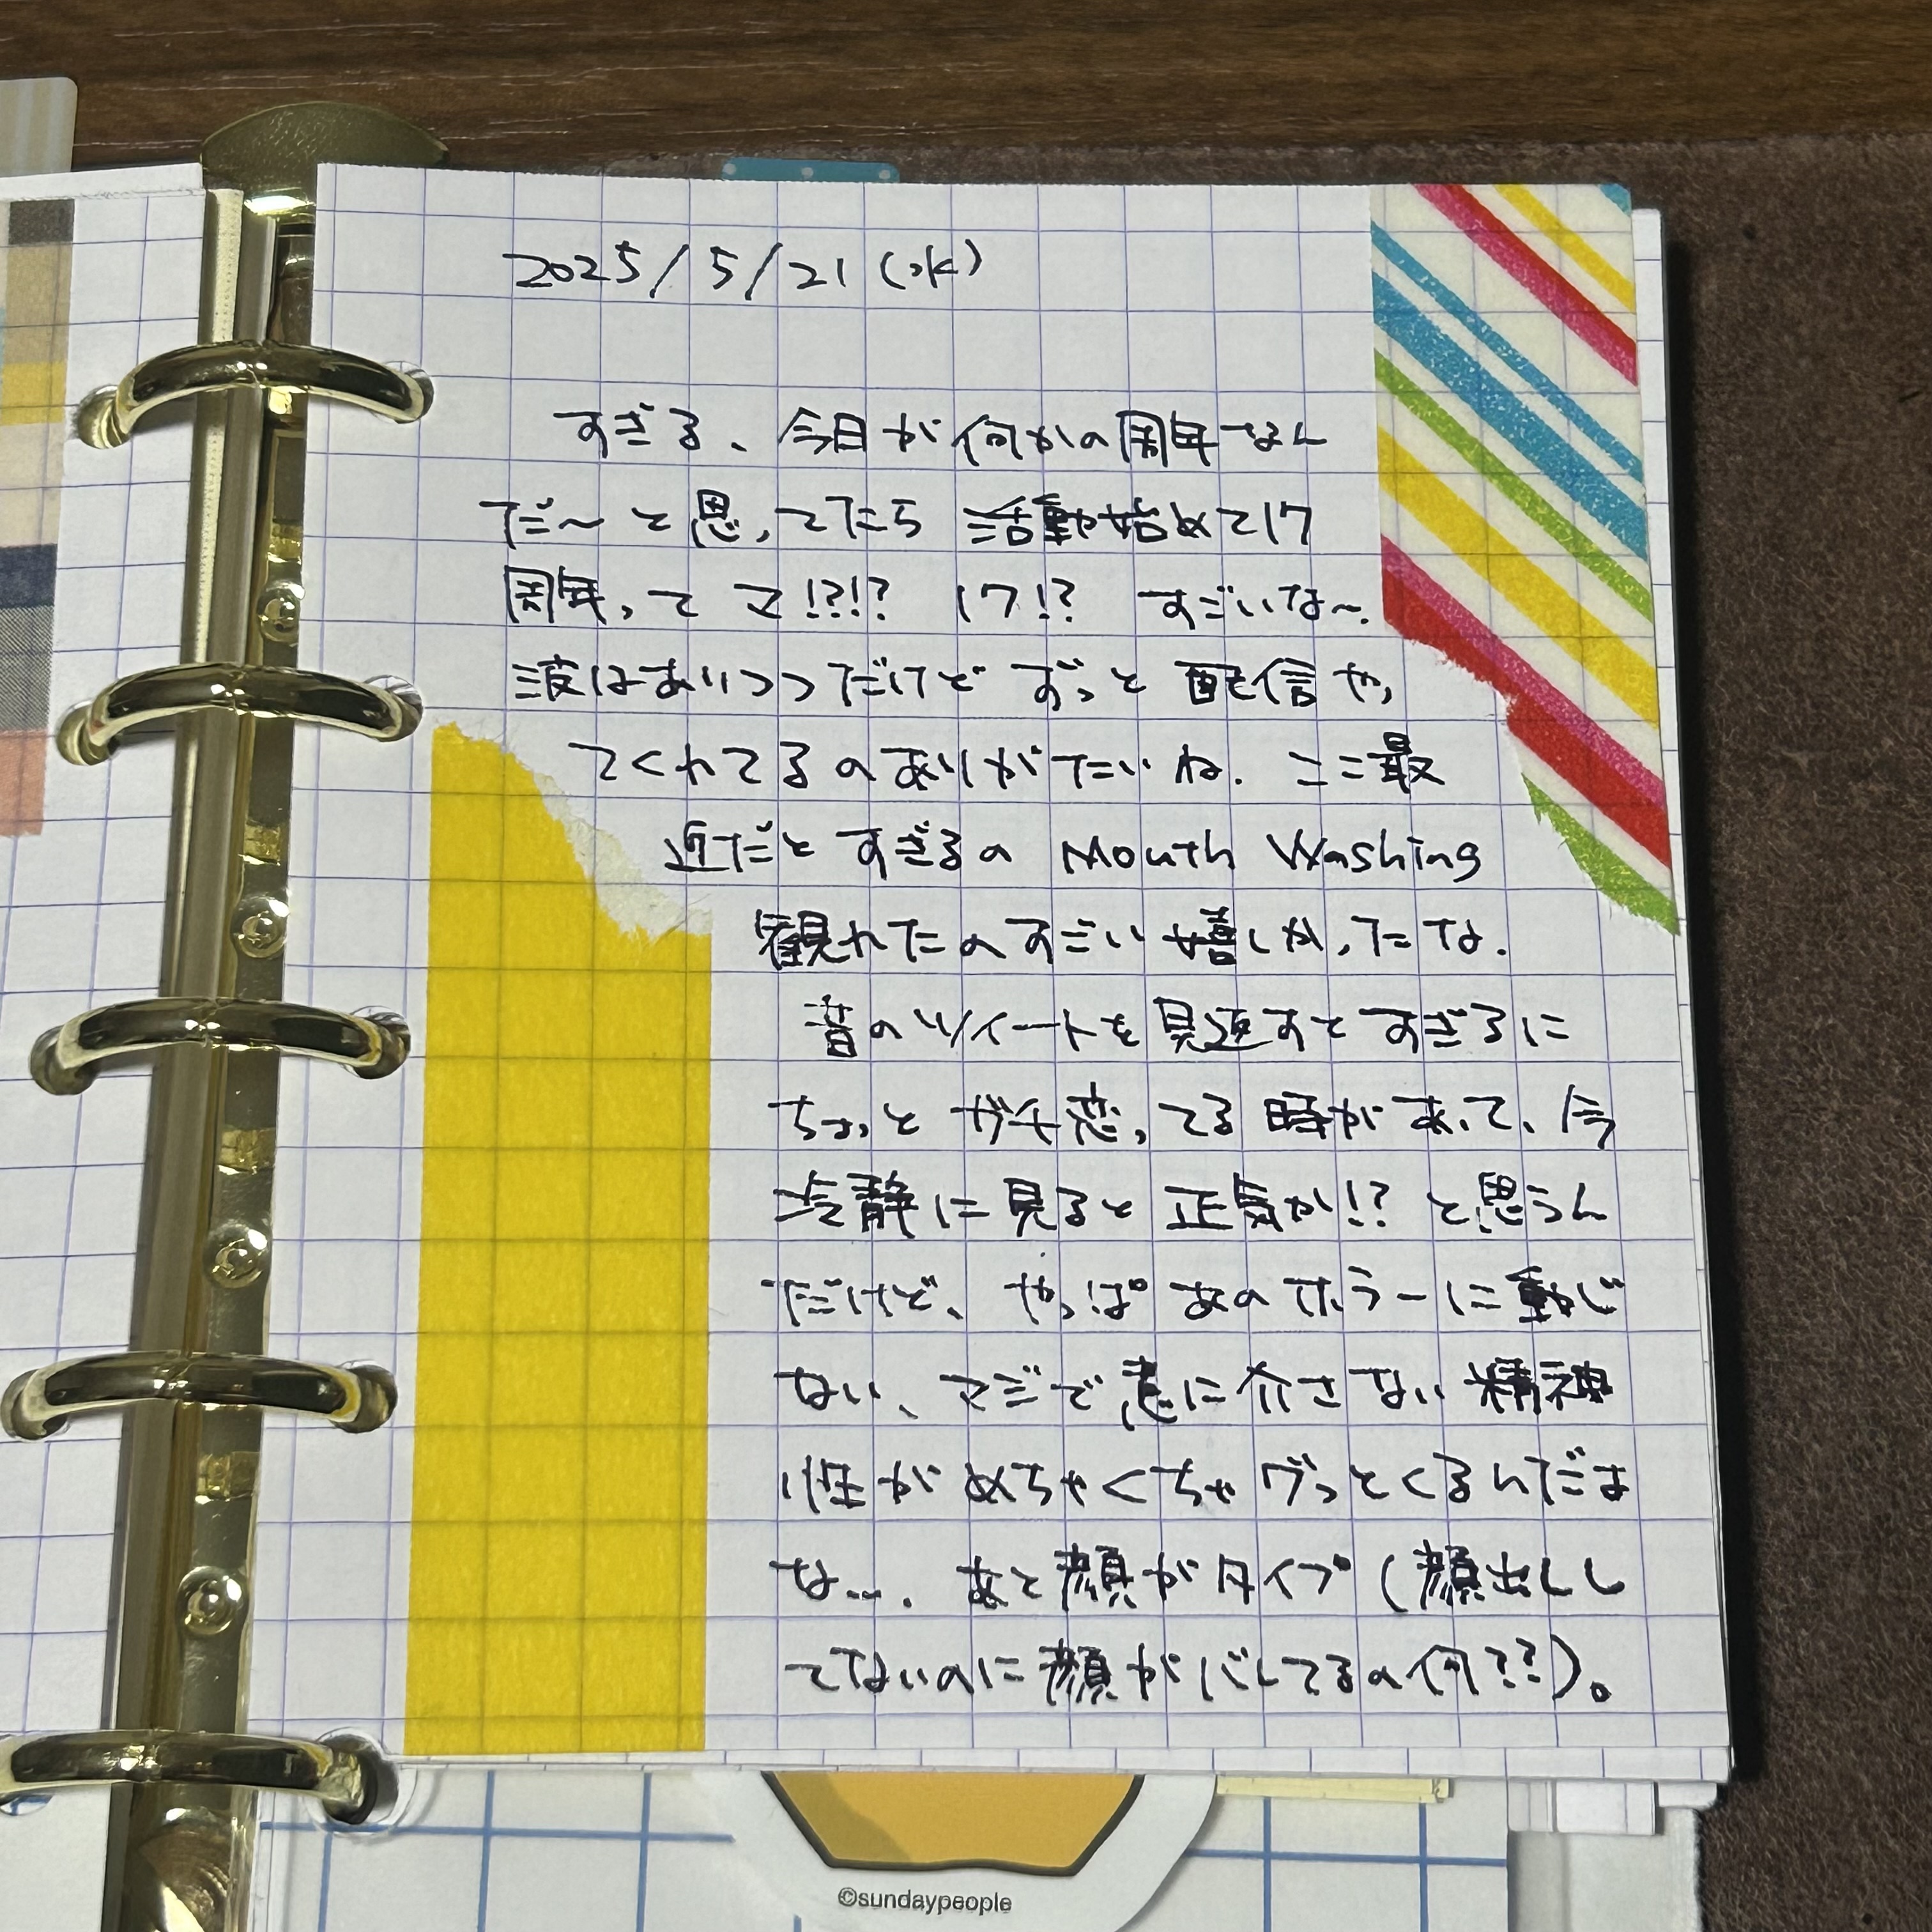 2025/5/21(水)
すぎる、今日が何かの周年なん
だ〜と思ってたら 活動始めて17
周年ってマ!?!? 17!? すごいな〜.
波はありつつだけどずっと配信やっ
てくれてるのありがたいね. ここ最
近だとすぎるの Mouth Washing
観れたのすごい嬉しかったな.
昔のツイートを見返すとすぎるに
ちょっとガチ恋ってる時があって、今
冷静に見ると正気か!?と思うん
だけど、やっぱあのホラーに動じ
ない、マジで意に介さない精神
性がめちゃくちゃグっとくるんだよ
な…. あと顔がタイプ(顔出しし
てないのに顔がバレてるの何??)。
©sundaypeople